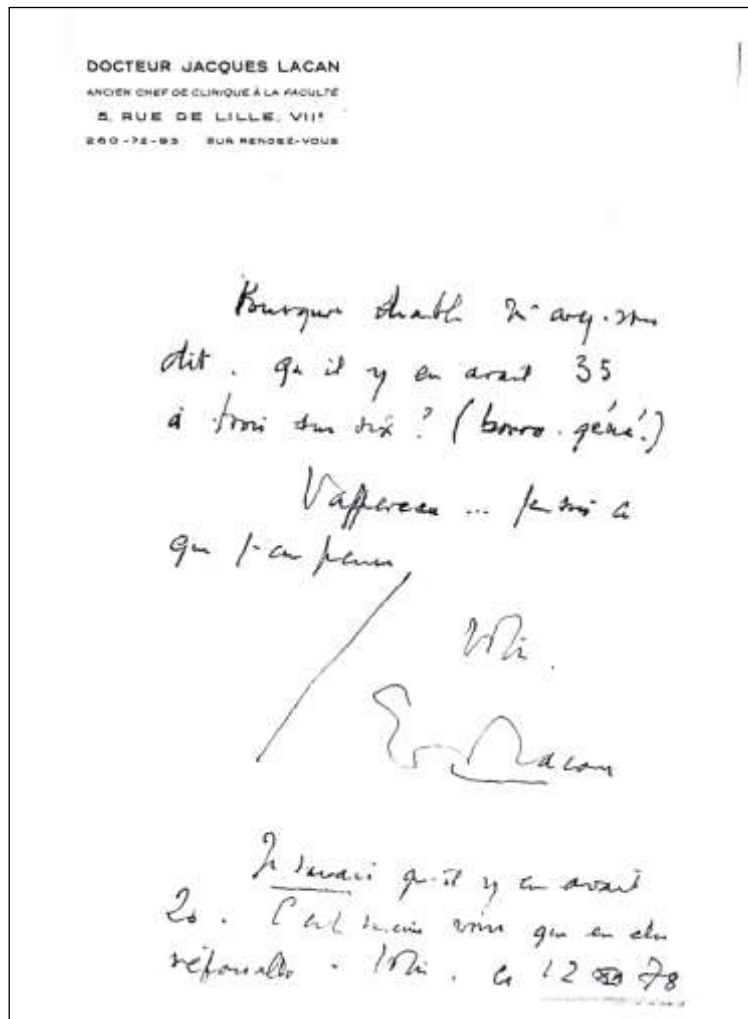 DOCTEUR JACQUES LACAN
ANCIEN CHEF DE CLINIQUE À LA FACULTÉ
5, RUE DE LILLE, VIIe
260-72-93 SUR RENDEZ-VOUS
Pourquoi diable m'avez-vous
dit. qu'il y en avait 35
à trois sur six ? (borro. géné.)
Vappereau ... j'en suis à
que j'en
Votre.
Lacan
Je savais qu'il y en avait
20. C'est vous que en
Votre. ce 12 78